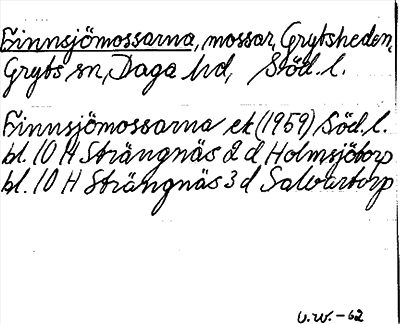 Finnsjömossarna, mossar, Grytsheden,
Gryts sn, Daga hd, Söd. l.
Finnsjömossarna ek (1959) Söd. l.
bl. 10 H Strängnäs 2 d Holmsjötorp
bl. 10 H Strängnäs 3 d Salvartorp
U.W. -62